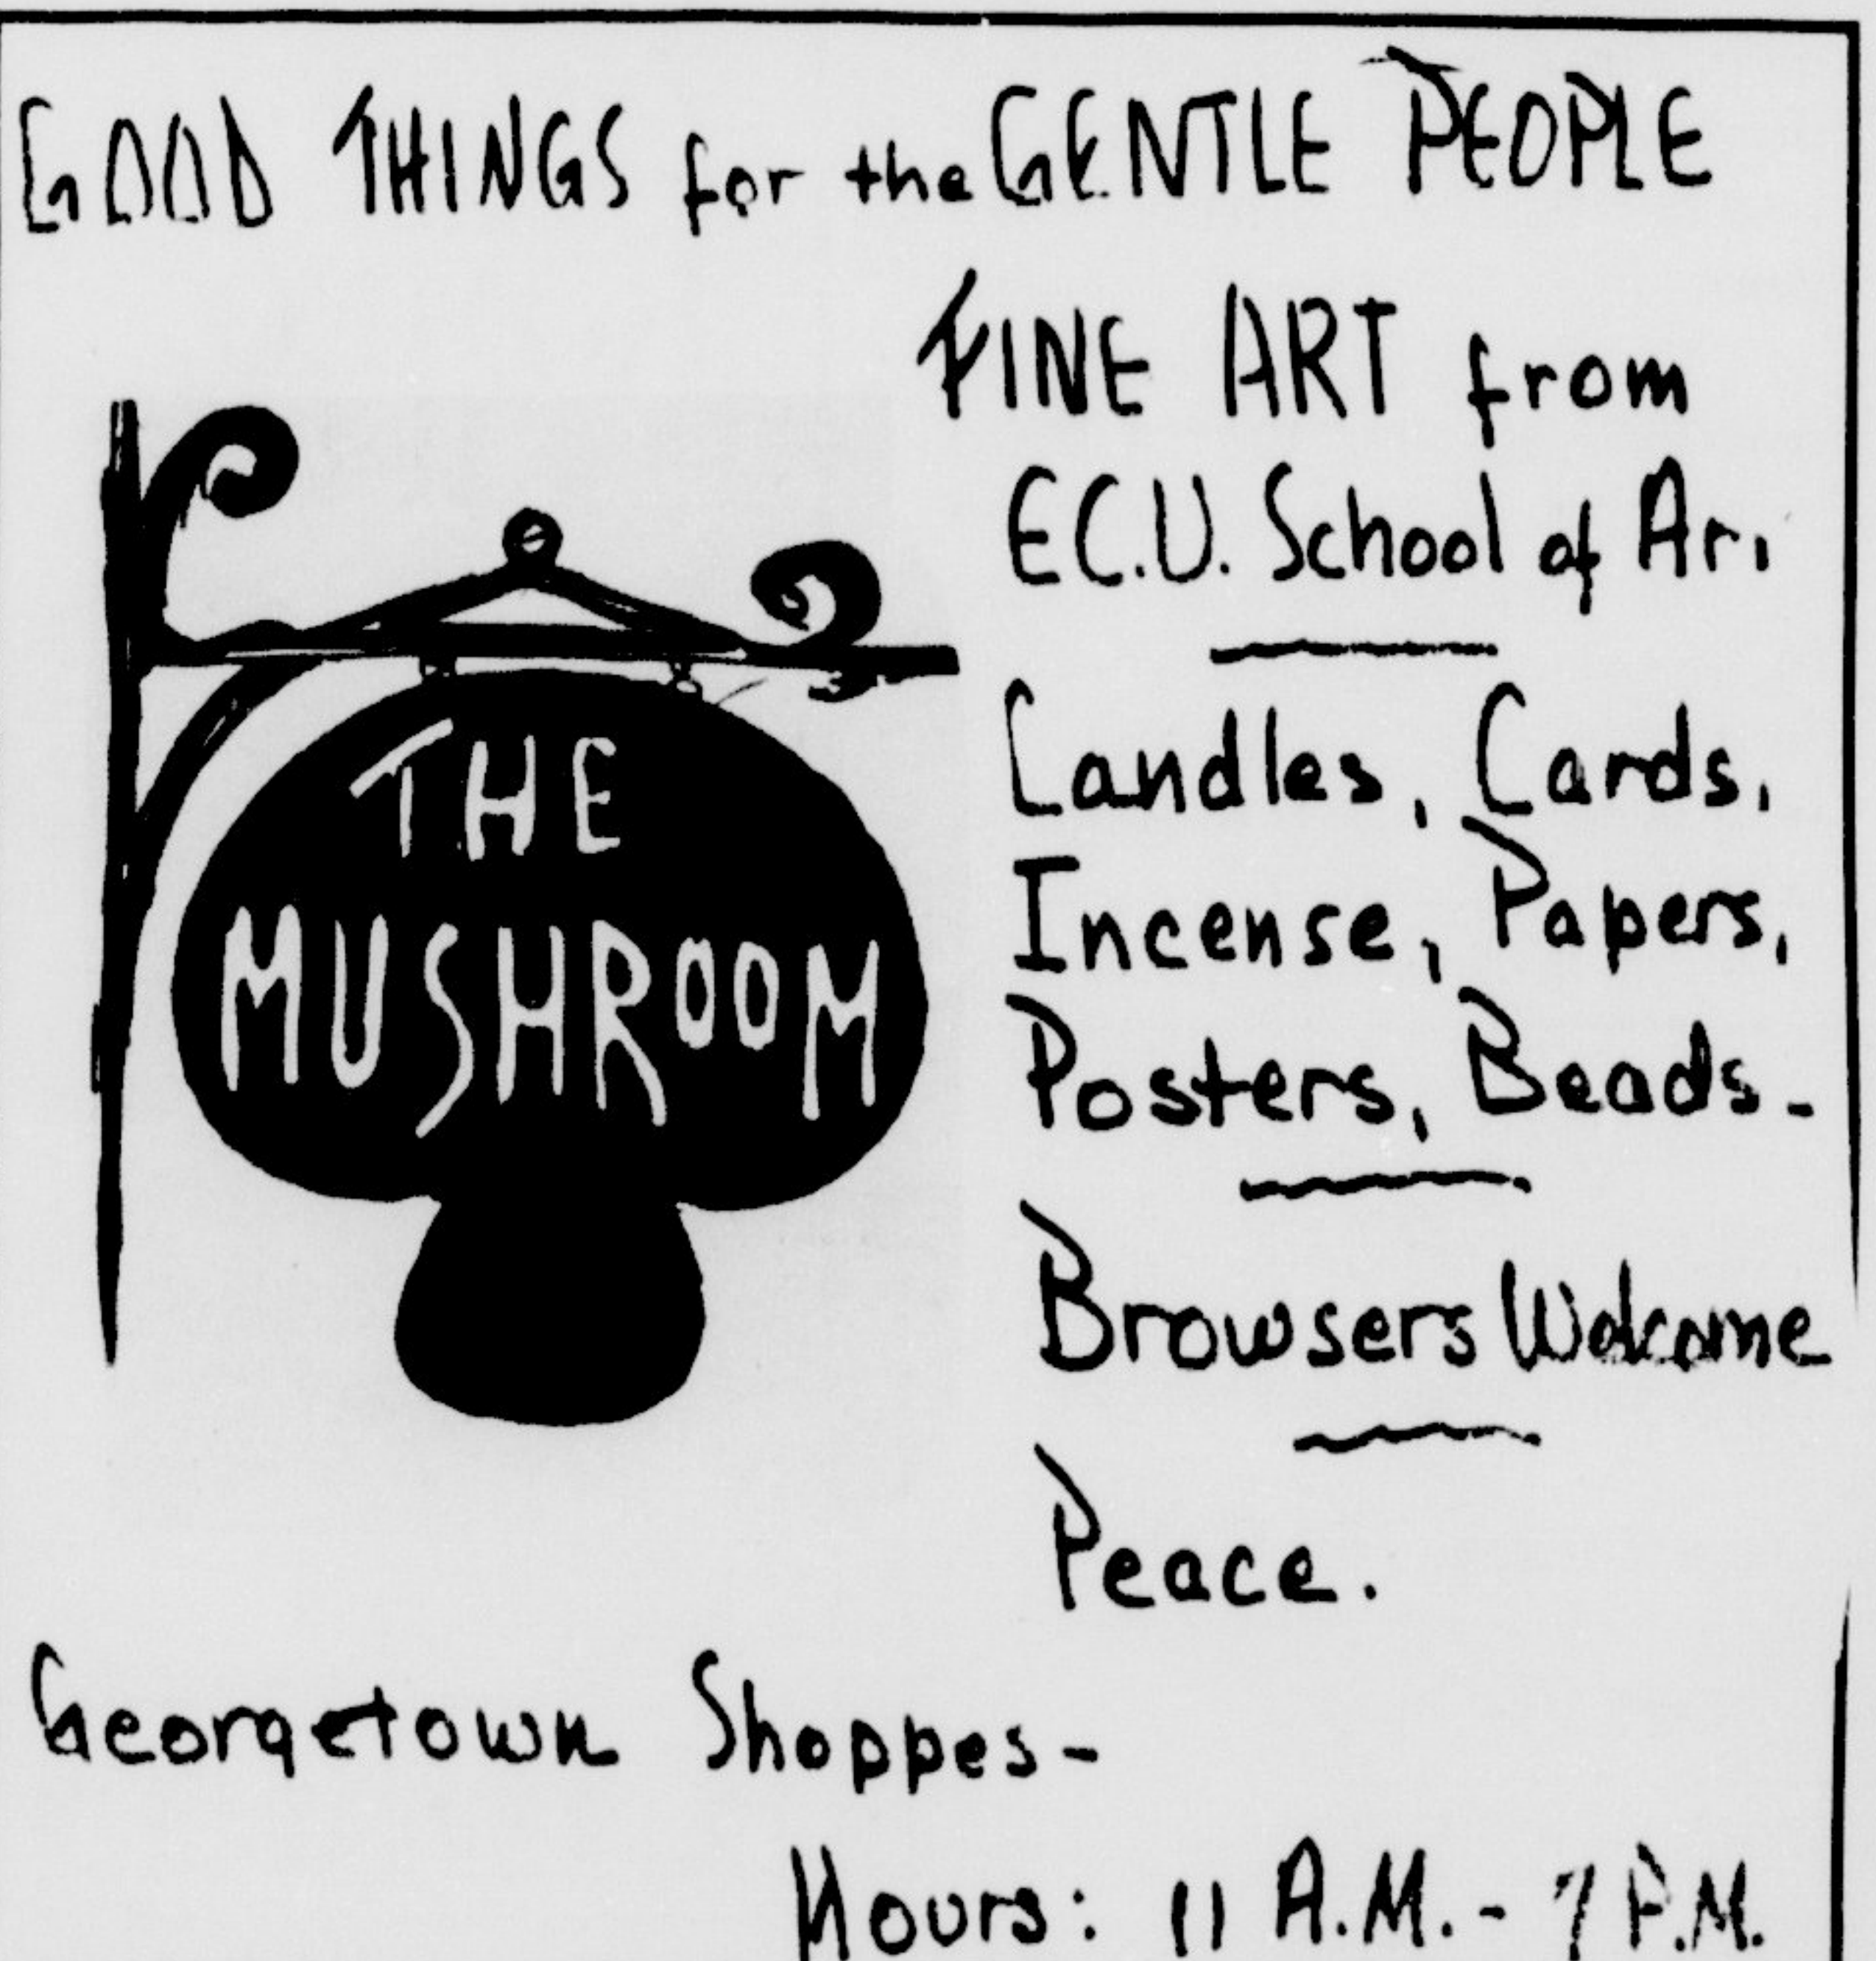 GOOD THINGS for the GENTLE PEOPLE
FINE ART from
E.C.U. School of Ar.
THE
MUSHROOM
Candles, Cards,
Incense, Papers,
Posters, Beads-
Browsers Welcome
Peace.
Georgetown Shoppes-
Hours: 11 A.M. - 7 P.M.